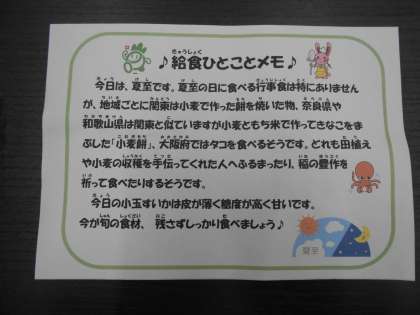 ♪給食ひとことメモ♪
今日は、夏至です。夏至の日に食べる行事食は特にありません
が、地域ごとに関東は小麦で作った餅を焼いた物、奈良県や
和歌山県は関東と似ていますが小麦ともち米で作ってきなこをま
ぶした「小麦餅」、大阪府ではタコを食べるそうです。どれも田植え
や小麦の収穫を手伝ってくれた人へふるまったり、稲の豊作を
祈って食べたりするそうです。
今日の小玉すいかは皮が薄く糖度が高く甘いです。
今が旬の食材、残さずしっかり食べましょう♪
夏至